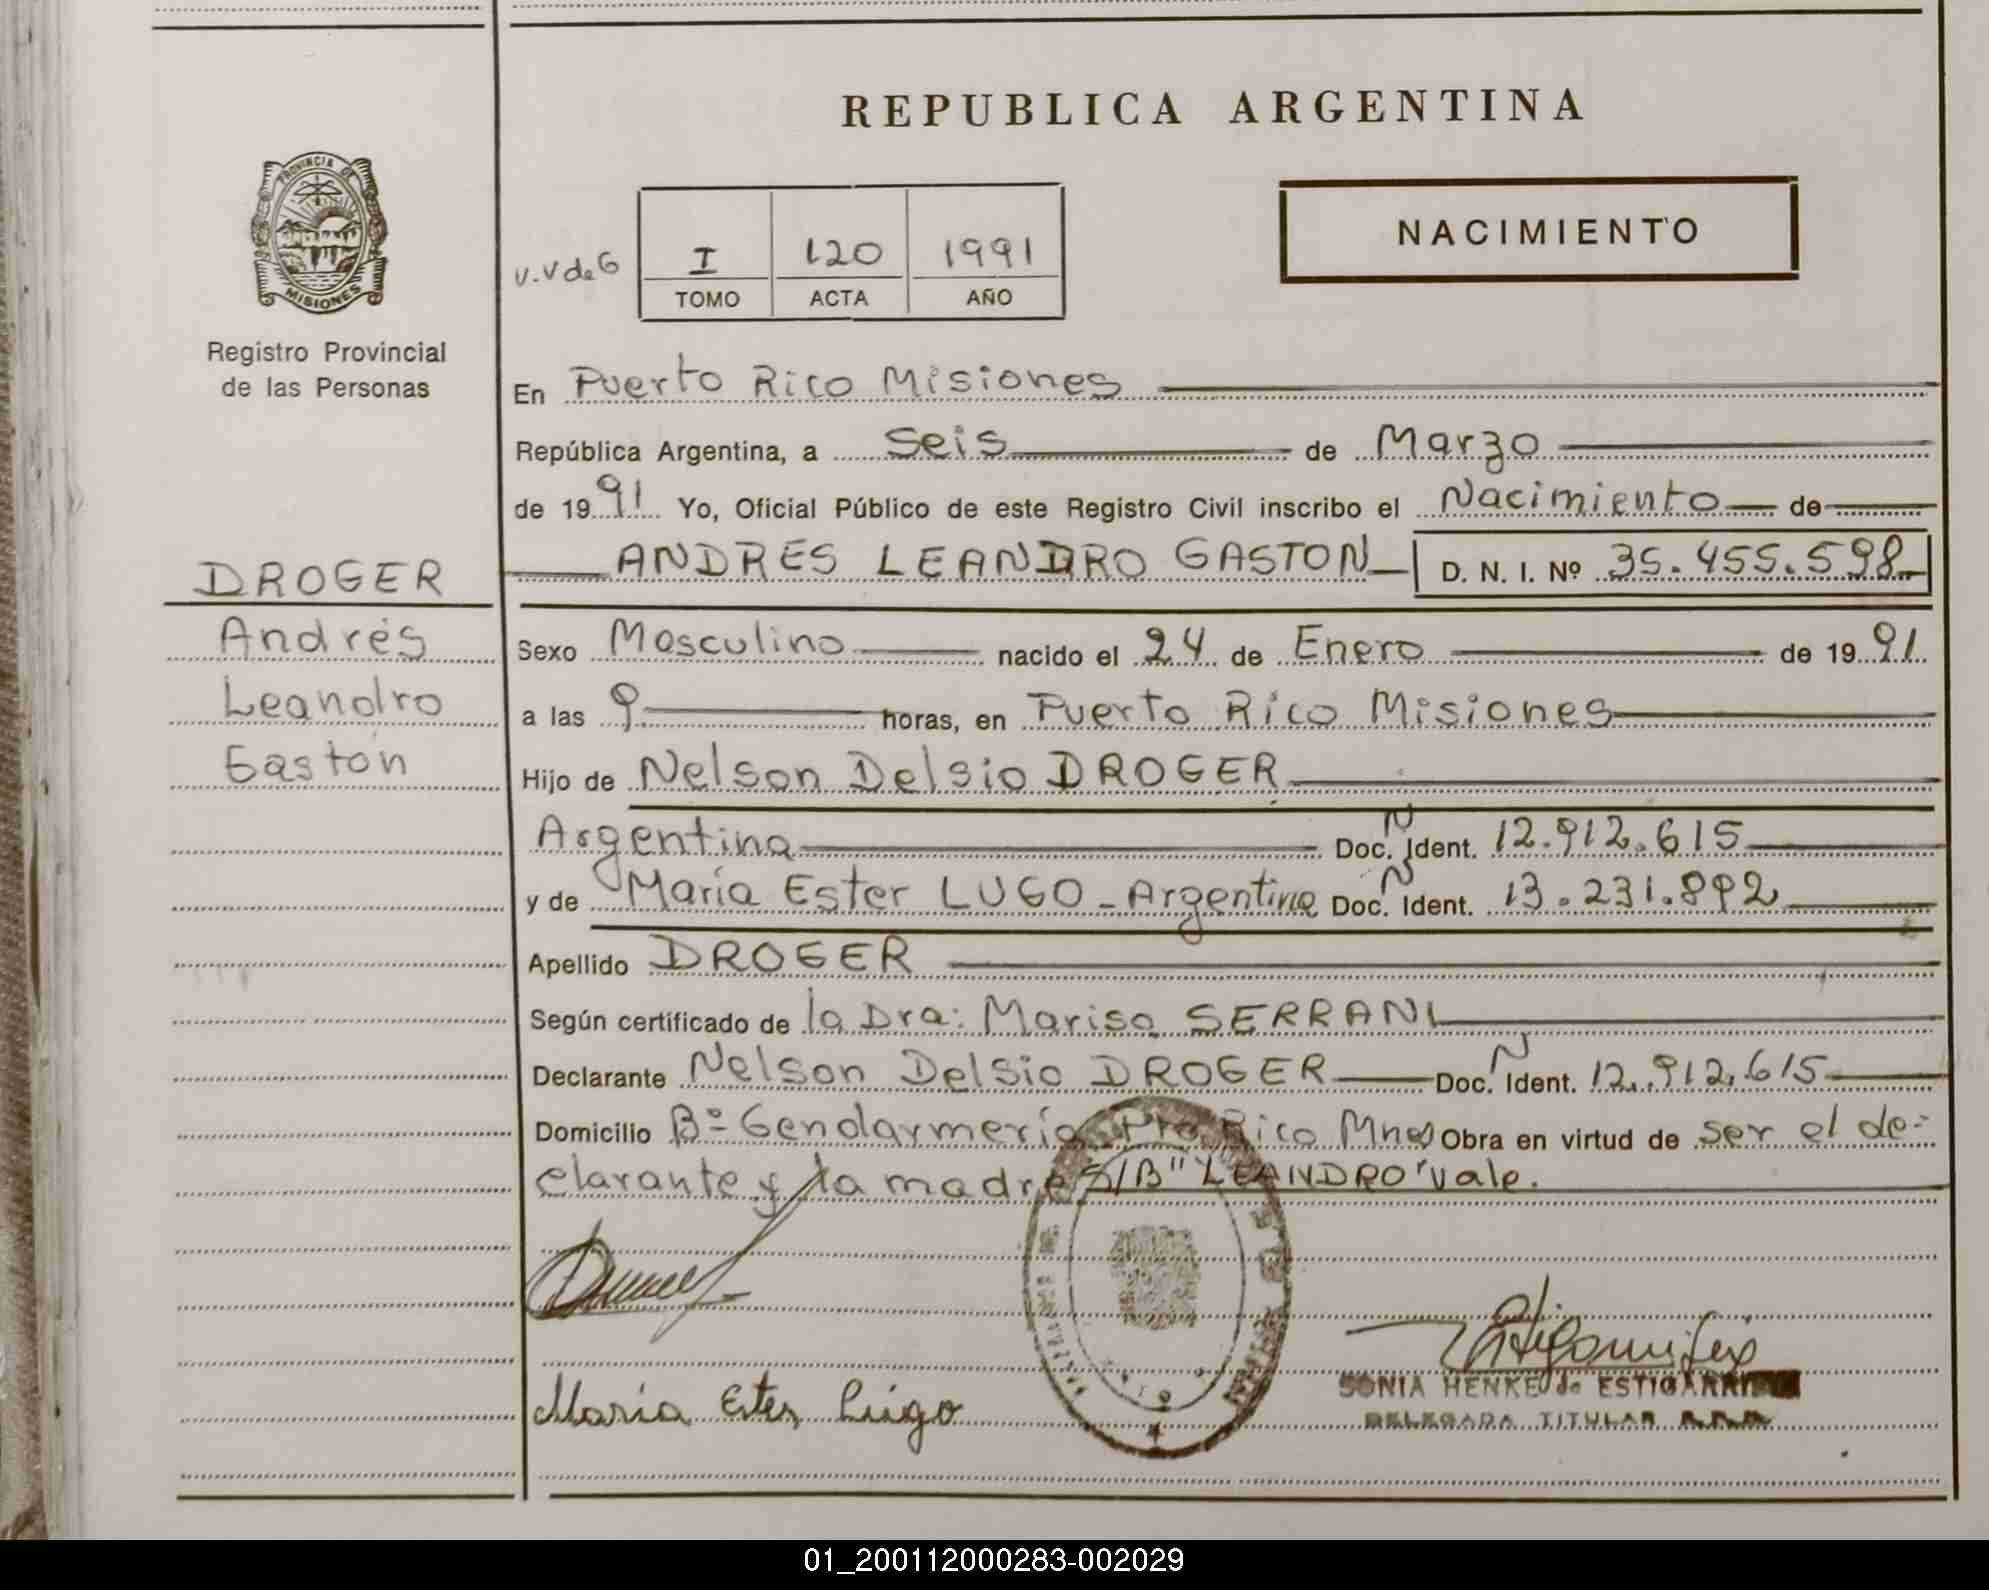 REPUBLICA ARGENTINA
PROVINCIA DE
MISIONES
Registro Provincial
de las Personas
NACIMIENTO
v.v de G
I 120 1991
TOMO ACTA AÑO
En Puerto Rico Misiones
República Argentina, a Seis de Marzo
de 1991 Yo, Oficial Público de este Registro Civil inscribo el Nacimiento de
ANDRES LEANDRO GASTON D. N. I. Nº 35.455.598
DROGER
Andrés
Leandro
Gastón
Sexo Masculino nacido el 24 de Enero de 1991
a las 9 horas, en Puerto Rico Misiones
Hijo de Nelson Delsio DROGER
Argentina Doc. N Ident. 12.912.615
y de María Ester LUGO - Argentina Doc. N Ident. 13.231.892
Apellido DROGER
Según certificado de la Dra: Marisa SERRANI
Declarante Nelson Delsio DROGER Doc. N Ident. 12.912.615
Domicilio Bº Gendarmería Pto. Rico Mnes Obra en virtud de ser el de-
clarante y la madre S/B "LEANDRO" vale.
María Ester Lugo
SONIA HENKE de ESTIGARRIBIA
DELEGADA TITULAR
01_200112000283-002029